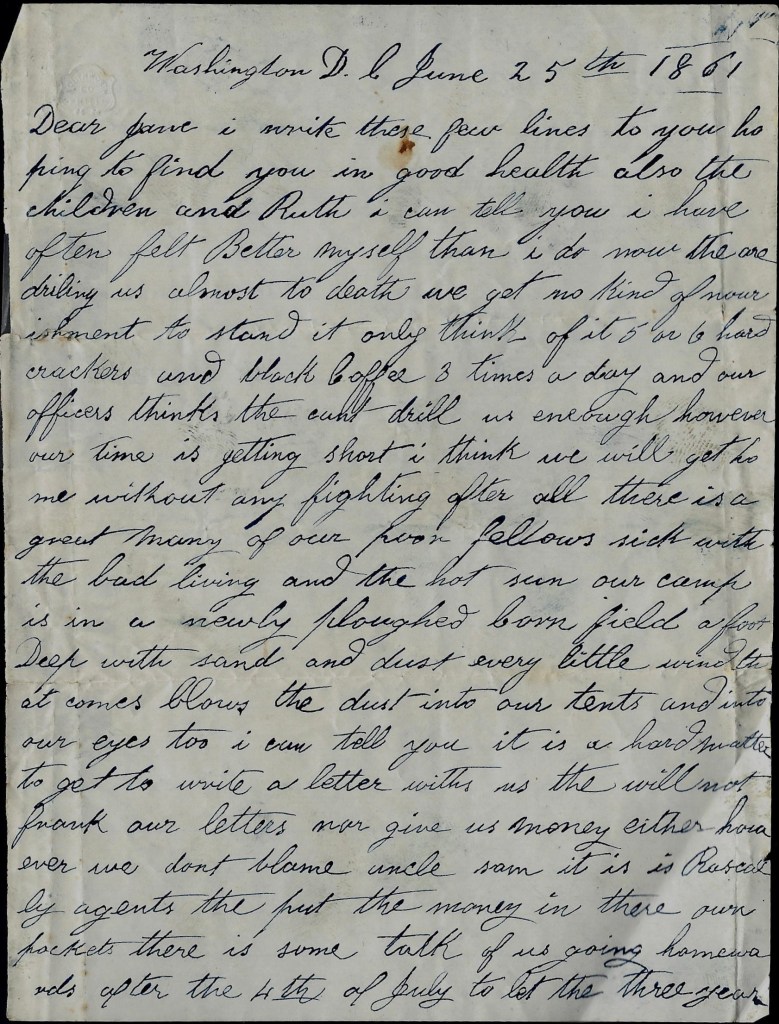 Washington D. C June 25th 1861
Dear Jane i write these few lines to you ho
ping to find you in good health also the
children and Ruth i can tell you i have
often felt Better myself than i do now the are
driling us almost to death we get no kind of nour
ishment to stand it only think of it 5 or 6 hard
crackers and black Coffee 3 times a day and our
officers thinks the cant drill us eneough however
our time is getting short i think we will get ho
me without any fighting after all there is a
great many of our poor fellows sick with
the bad living and the hot sun our camp
is in a newly ploughed Corn field a foot
Deep with sand and dust every little wind th
at comes blows the dust into our tents and into
our eyes too i can tell you it is a hard matter
to get to write a letter withs us the will not
frank our letters nor give us money either how
ever we dont blame uncle sam it is is Rascal
ly agents the put the money in there own
pockets there is some talk of us going homewa
rds after the 4th of July to let the three year